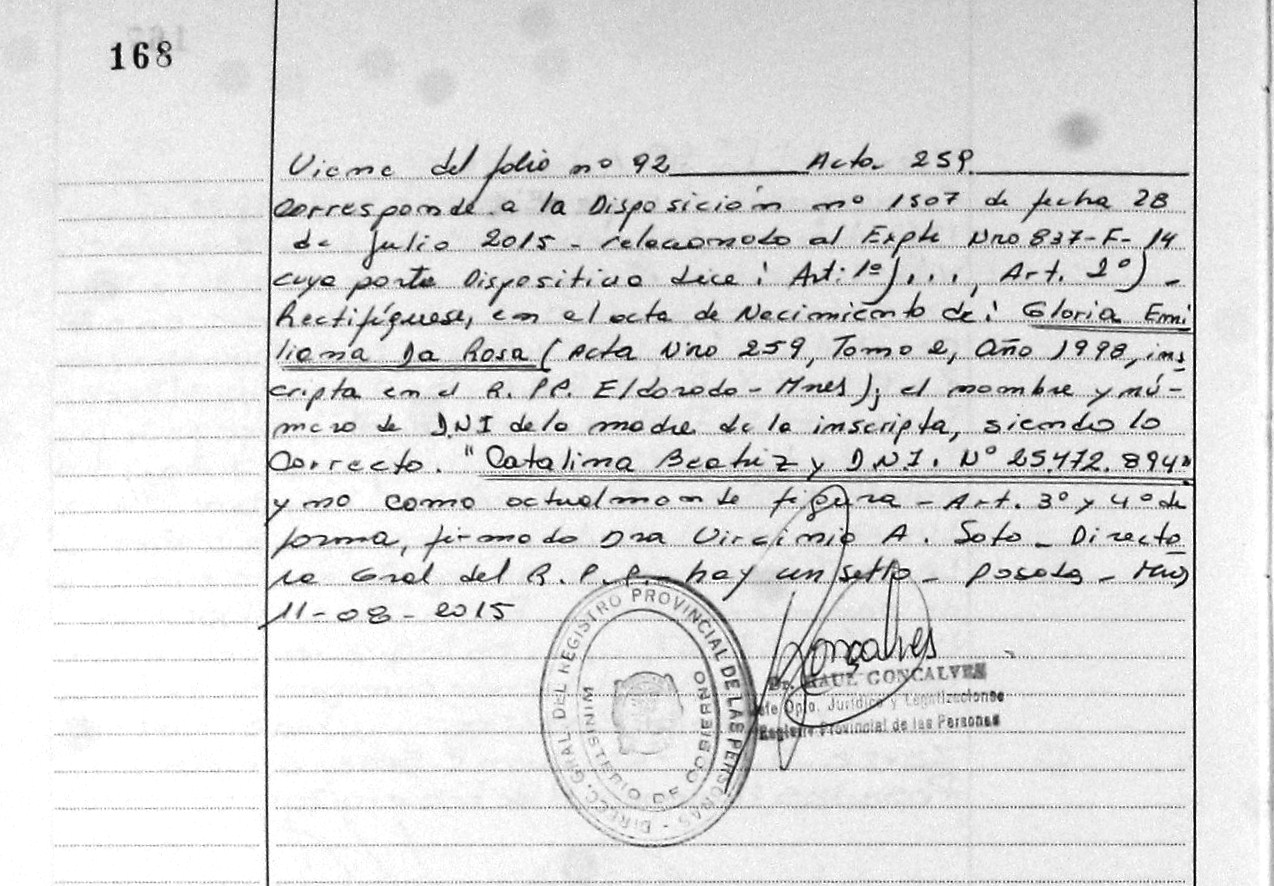 168
Viene del folio nº 92 Acta 259
Corresponde a la Disposición nº 1507 de fecha 28
de Julio 2015 - relacionado al Expte Nro 837-F-14
cuya parte Dispositiva dice: Art: 1º)..., Art. 2º) -
Rectifíquese, en el acta de Nacimiento de: Gloria Emi
liana Da Rosa (Acta Nro 259, Tomo 2, Año 1998, ins
cripta en el R. PP. Eldorado - Mnes); el nombre y nú-
mero de D.N.I de la madre de la inscripta, siendo lo
Correcto. "Catalina Beatriz y D.N.I. Nº 25.472.894"
y no como actualmente figura - Art. 3º y 4º de
forma, firmado Dra Virginia A. Soto - Directo
ra Gral del R. P. P. hay un sello - Posadas - Mns
11-08-2015
DIREC. GRAL. DEL REGISTRO PROVINCIAL DE LAS PERSONAS -
MINISTERIO DE GOBIERNO
Gonçalves
Dr. RAUL GONCALVES
Jefe Dpto. Jurídico y Legalizaciones
Registro Provincial de las Personas